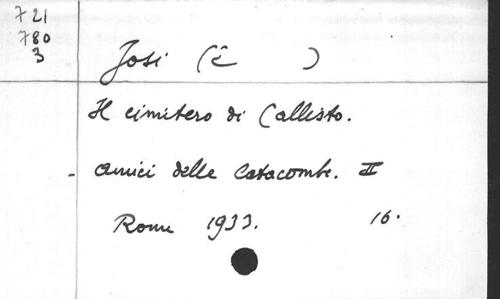 721
780
3
Josi (E )
Il cimitero di Callisto.
- Amici delle Catacombe. II
Rome 1933. 16.